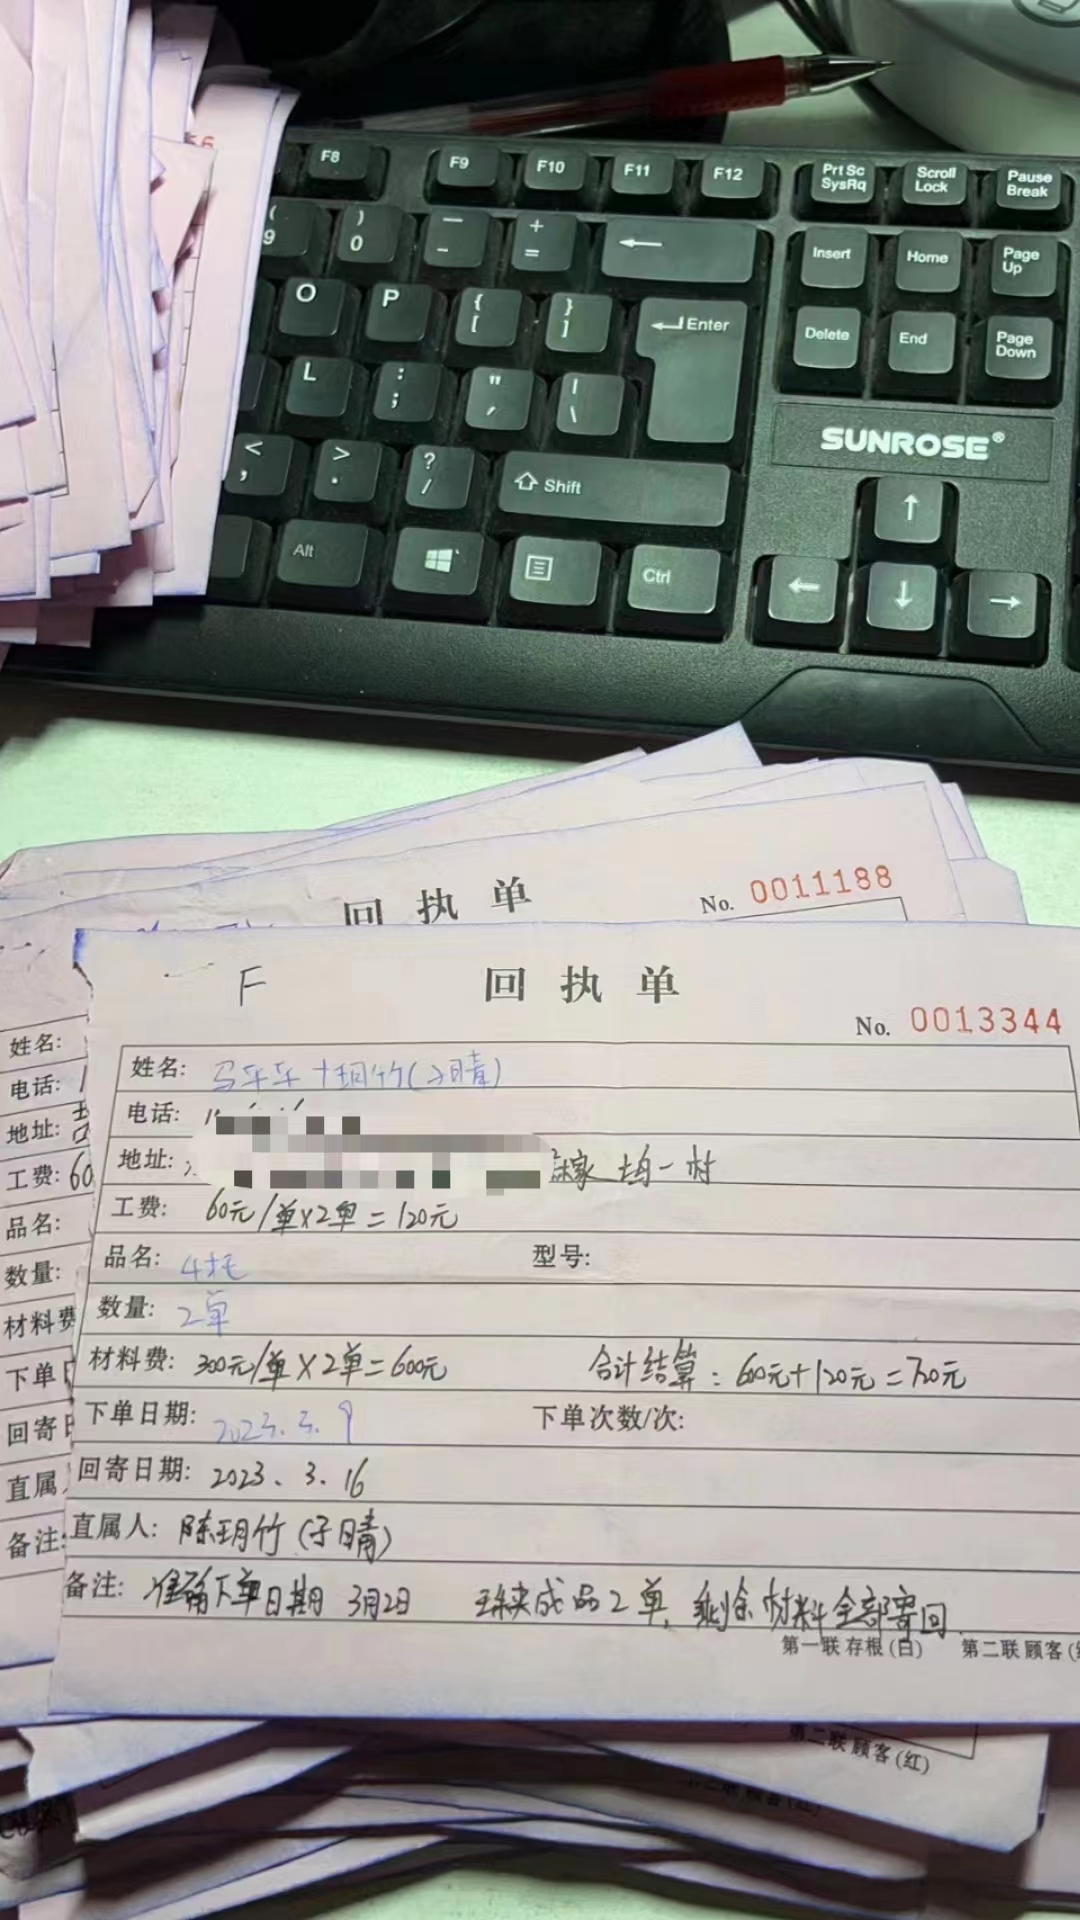 56
F8 F9 F10 F11 F12 Prt Sc SysRq Scroll Lock Pause Break
( 9 ) 0 — - + = ← Insert Home Page Up
O P { [ } ] Enter Delete End Page Down
L : ; " ' | \
SUNROSE®
< , > . ? / Shift ↑
Alt Ctrl ← ↓ →
回执单 No. 0011188
F 回执单
No. 0013344
姓名:
电话:
地址:
工费: 60
品名:
数量:
材料费
下单日
回寄日
直属
备注:
姓名: 玥竹(子晴)
电话:
地址: 均一村
工费: 60元/单×2单=120元
品名: 4托 型号:
数量: 2单
材料费: 300元/单×2单=600元 合计结算: 600元+120元=720元
下单日期: 2023.3.9 下单次数/次:
回寄日期: 2023.3.16
直属人: 陈玥竹(子晴)
备注: 准确下单日期 3月2日 成品2单,剩余材料全部寄回
第一联 存根(白) 第二联 顾客(红
第二联 顾客(红)